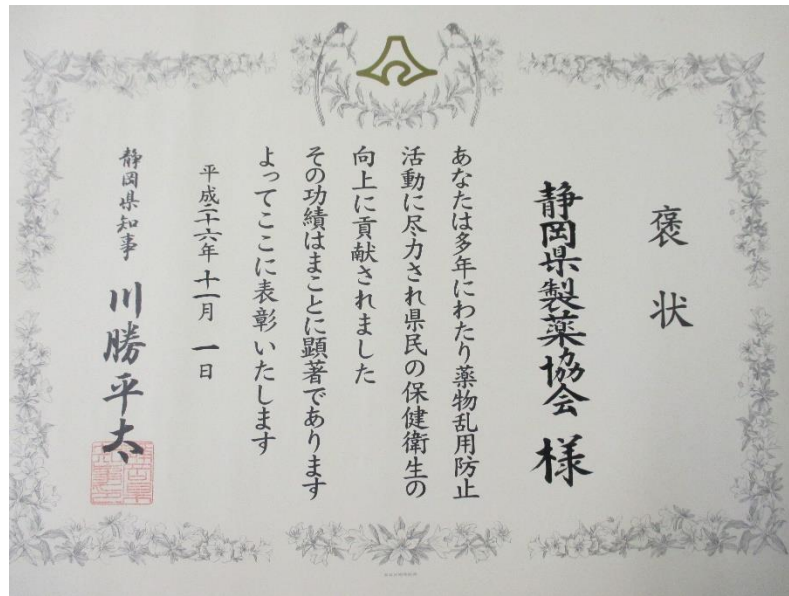 褒状
静岡県製薬協会 様
あなたは多年にわたり薬物乱用防止
活動に尽力され県民の保健衛生の
向上に貢献されました
その功績はまことに顕著であります
よってここに表彰いたします
平成二十六年 十一月 一日
静岡県知事 川勝平太